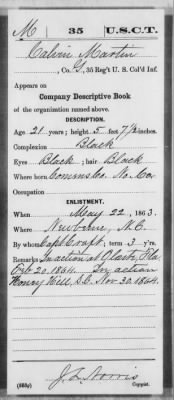 M 35 U.S.C.T.
Calvin Martin
, Co. G, 35 Reg't U. S. Col'd Inf.
Appears on
Company Descriptive Book
of the organization named above.
DESCRIPTION.
Age 21 years; height 5 feet 7½ inches.
Complexion Black
Eyes Black; hair Black
Where born Co. No. Ca
Occupation
ENLISTMENT.
When May 22, 1863.
Where Newberne, N.C.
By whom Capt Croft; term 3 y'rs.
Remarks In action at Fla
20. 1864. In action
Honey Hill, S.C. Nov. 30. 1864.
J. L. Norris
Copyist.